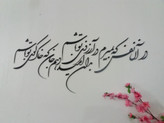 در آن نفس که بمیرم در آرزوی تو باشم
بدان امید دهم جان که خاک کوی تو باشم